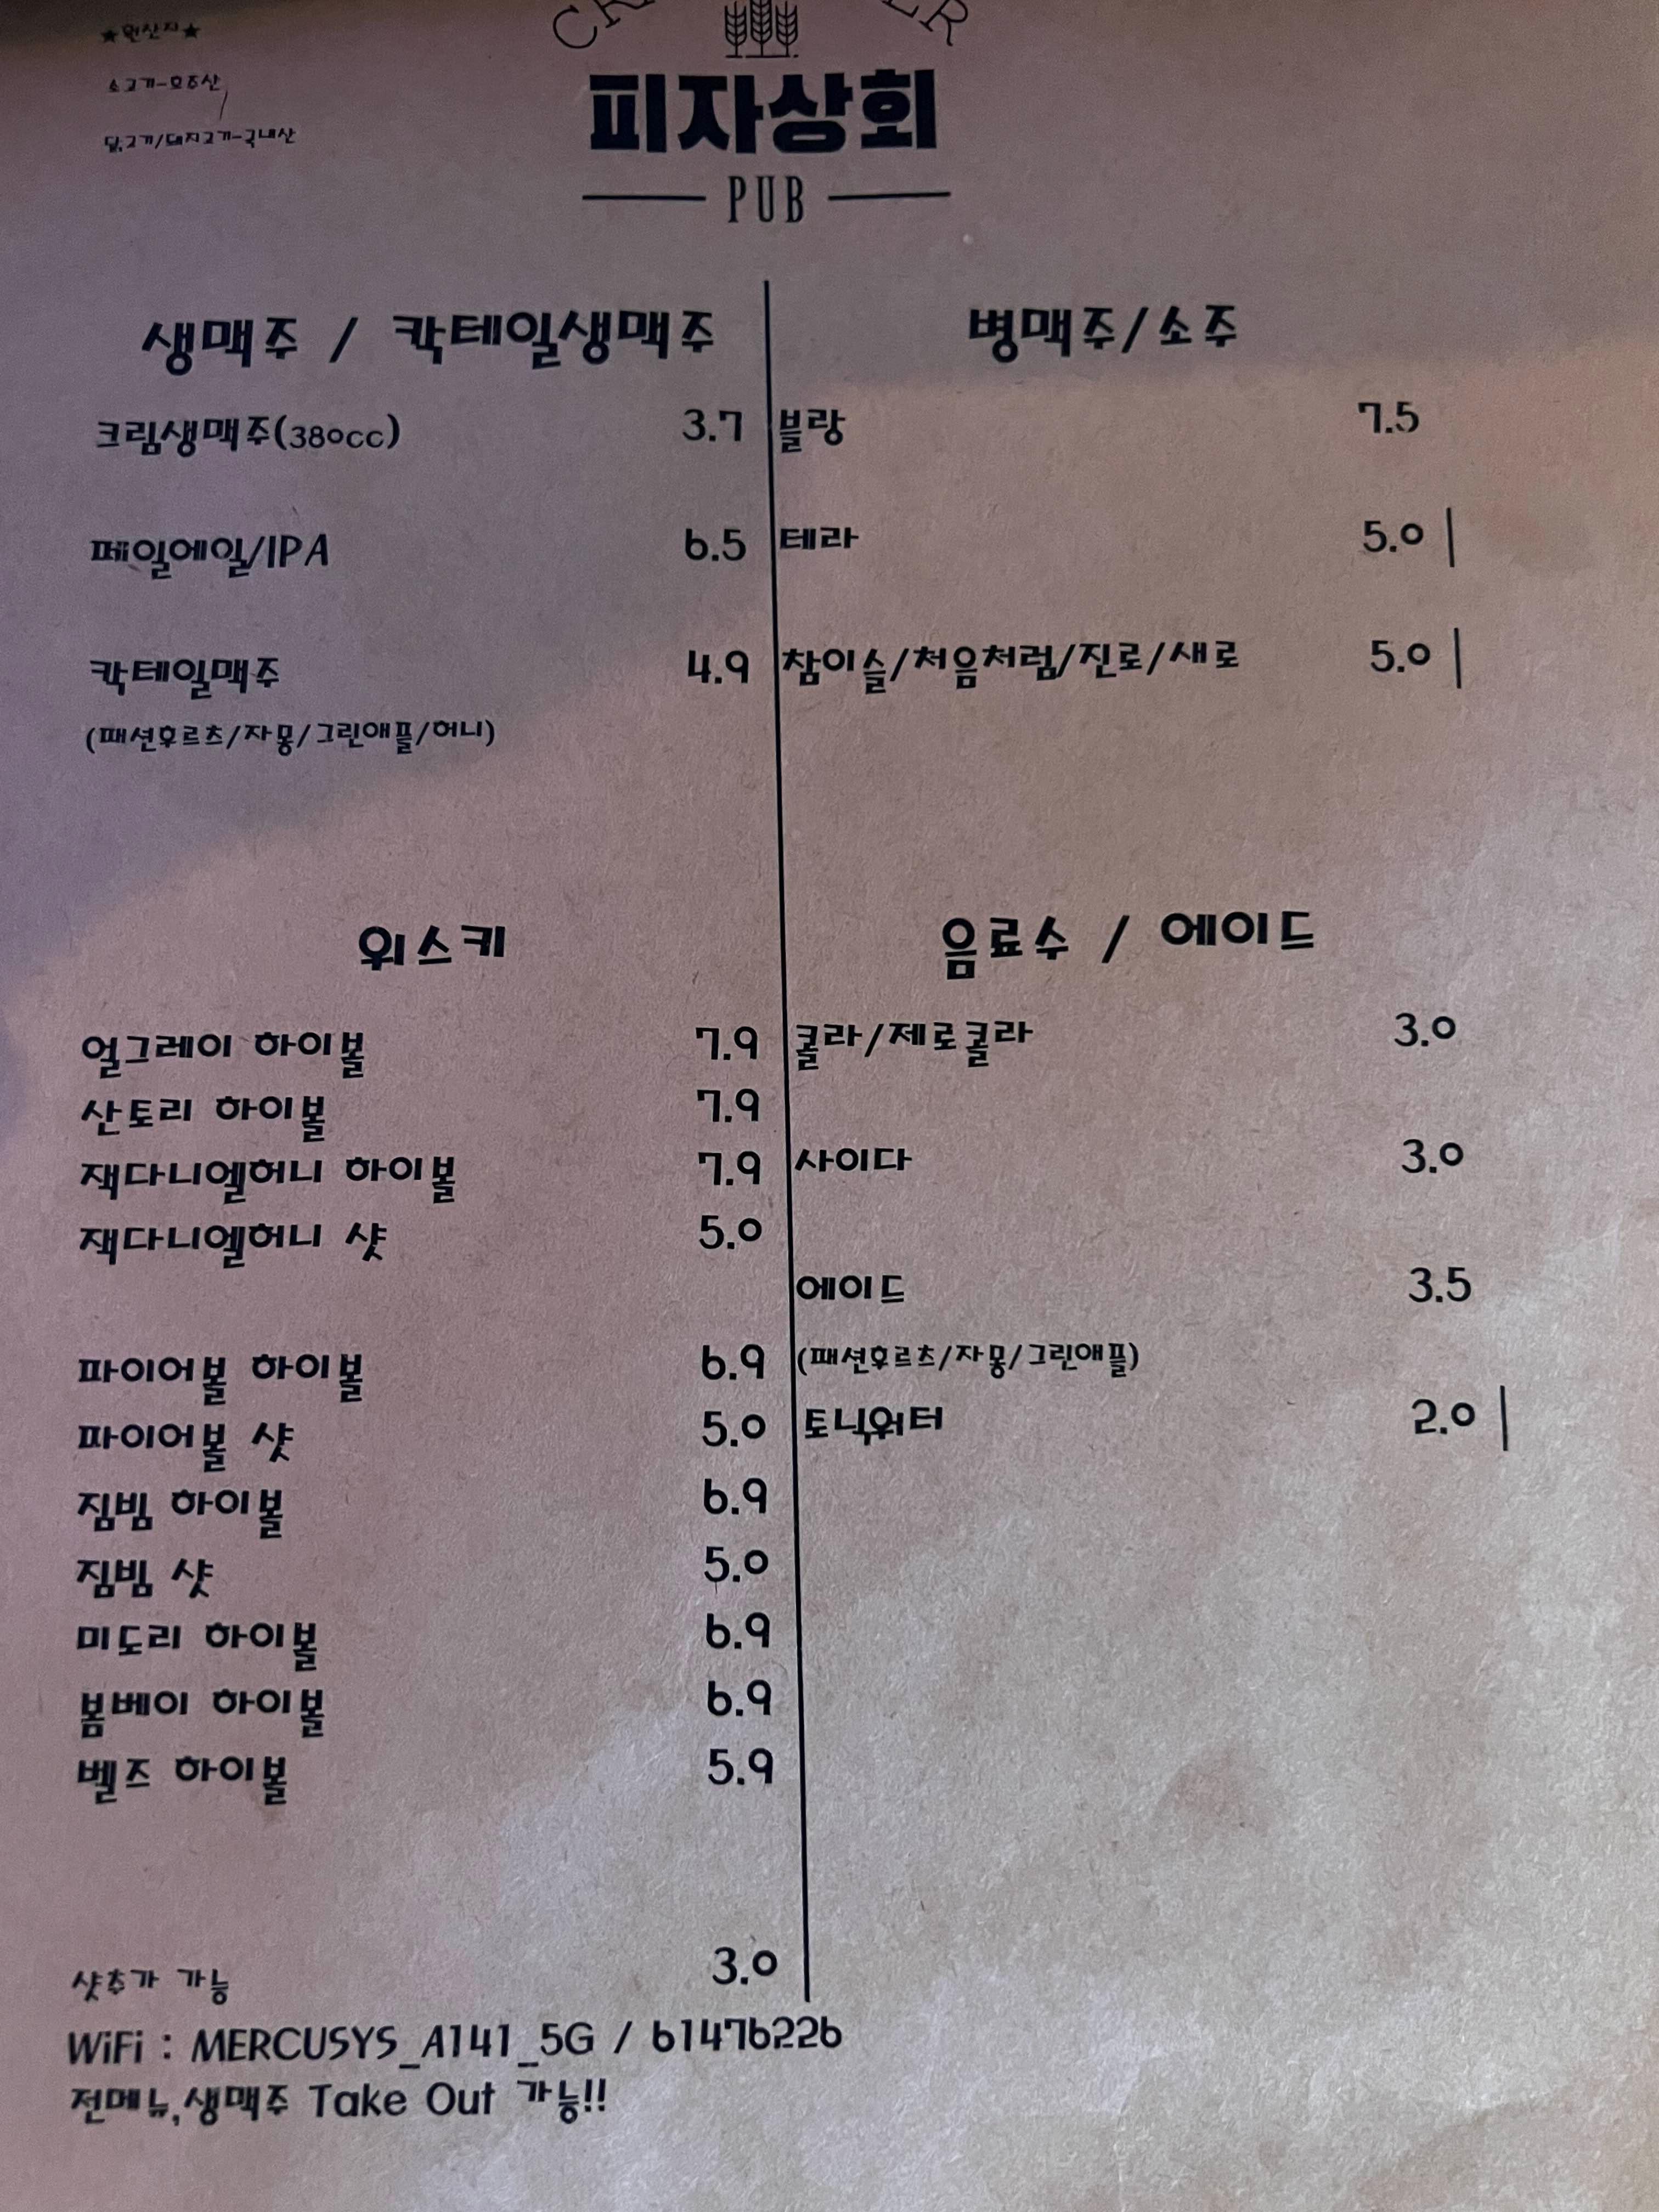 ★원산지★
소고기-호주산
닭고기/돼지고기-국내산
피자상회
PUB
생맥주 / 칵테일생맥주
크림생맥주(380cc) 3.7
페일에일/IPA 6.5
칵테일맥주 4.9
(패션후르츠/자몽/그린애플/허니)
병맥주/소주
블랑 7.5
테라 5.0
참이슬/처음처럼/진로/새로 5.0
위스키
얼그레이 하이볼 7.9
산토리 하이볼 7.9
잭다니엘허니 하이볼 7.9
잭다니엘허니 샷 5.0
파이어볼 하이볼 6.9
파이어볼 샷 5.0
짐빔 하이볼 6.9
짐빔 샷 5.0
미도리 하이볼 6.9
봄베이 하이볼 6.9
벨즈 하이볼 5.9
샷추가 가능 3.0
음료수 / 에이드
콜라/제로콜라 3.0
사이다 3.0
에이드 3.5
(패션후르츠/자몽/그린애플)
토닉워터 2.0
WiFi : MERCUSYS_A141_5G / 61476226
전메뉴,생맥주 Take Out 가능!!